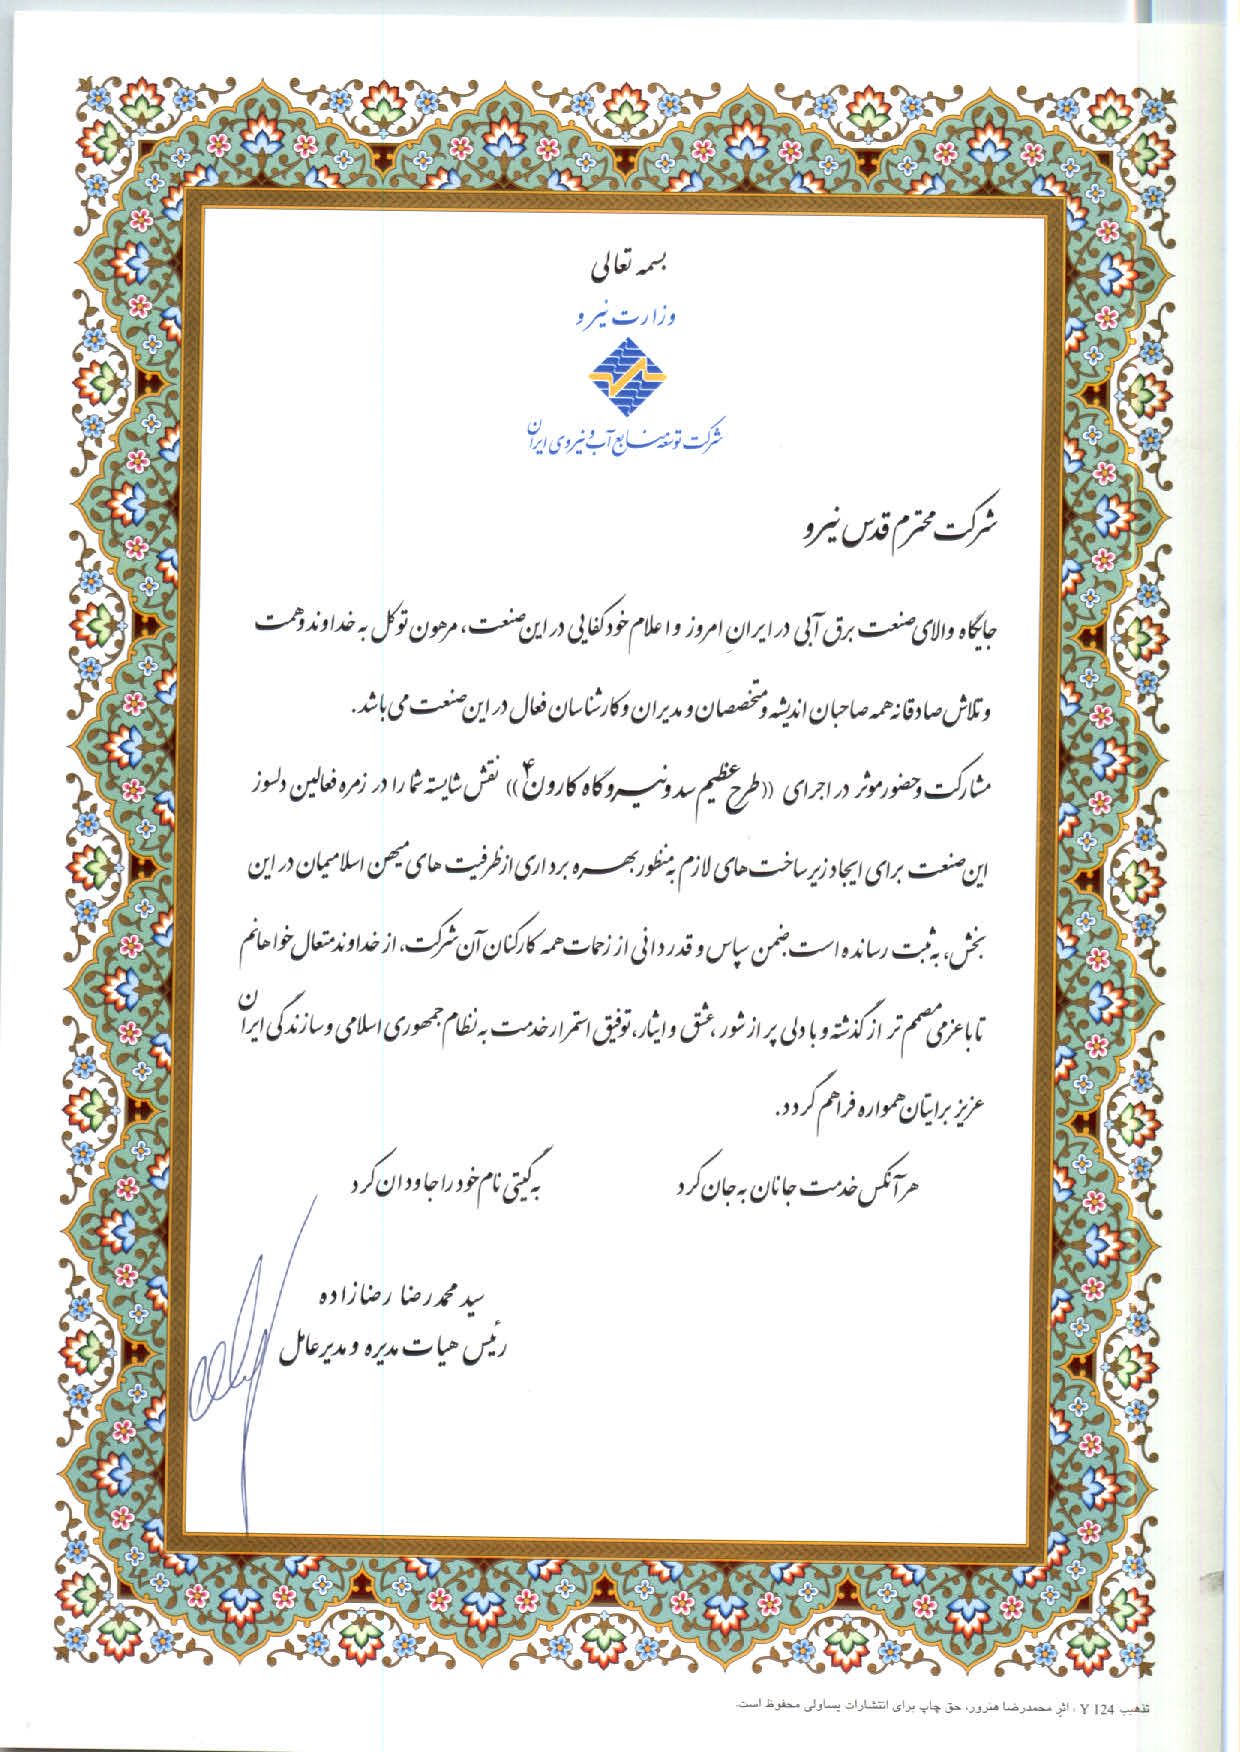 بسمه تعالی
وزارت نیرو
شرکت توسعه منابع آب و نیروی ایران
شرکت محترم قدس نیرو
جایگاه والای صنعت برق آبی در ایرانِ امروز و اعلام خودکفایی در این صنعت، مرهون توکل به خداوند و همت
و تلاش صادقانه همه صاحبان اندیشه و متخصصان و مدیران و کارشناسان فعال در این صنعت می باشد.
مشارکت و حضور موثر در اجرای ((طرح عظیم سد و نیروگاه کارون ۴)) نقش شایسته شما را در زمره فعالین دلسوز
این صنعت برای ایجاد زیرساخت های لازم به منظور بهره برداری از ظرفیت های میهن اسلامیمان در این
بخش، به ثبت رسانده است. ضمن سپاس و قدردانی از زحمات همه کارکنان آن شرکت، از خداوند متعال خواهانم
تا با عزمی مصمم تر از گذشته و با دلی پر از شور، عشق و ایثار، توفیق استمرار خدمت به نظام جمهوری اسلامی و سازندگی ایران
عزیز برایتان همواره فراهم گردد.
هر آنکس خدمت جانان به جان کرد به گیتی نام خود را جاودان کرد
سید محمدرضا رضازاده
رئیس هیات مدیره و مدیرعامل
تذهیب Y 124 ، اثر محمدرضا هنرور، حق چاپ برای انتشارات یساولی محفوظ است.